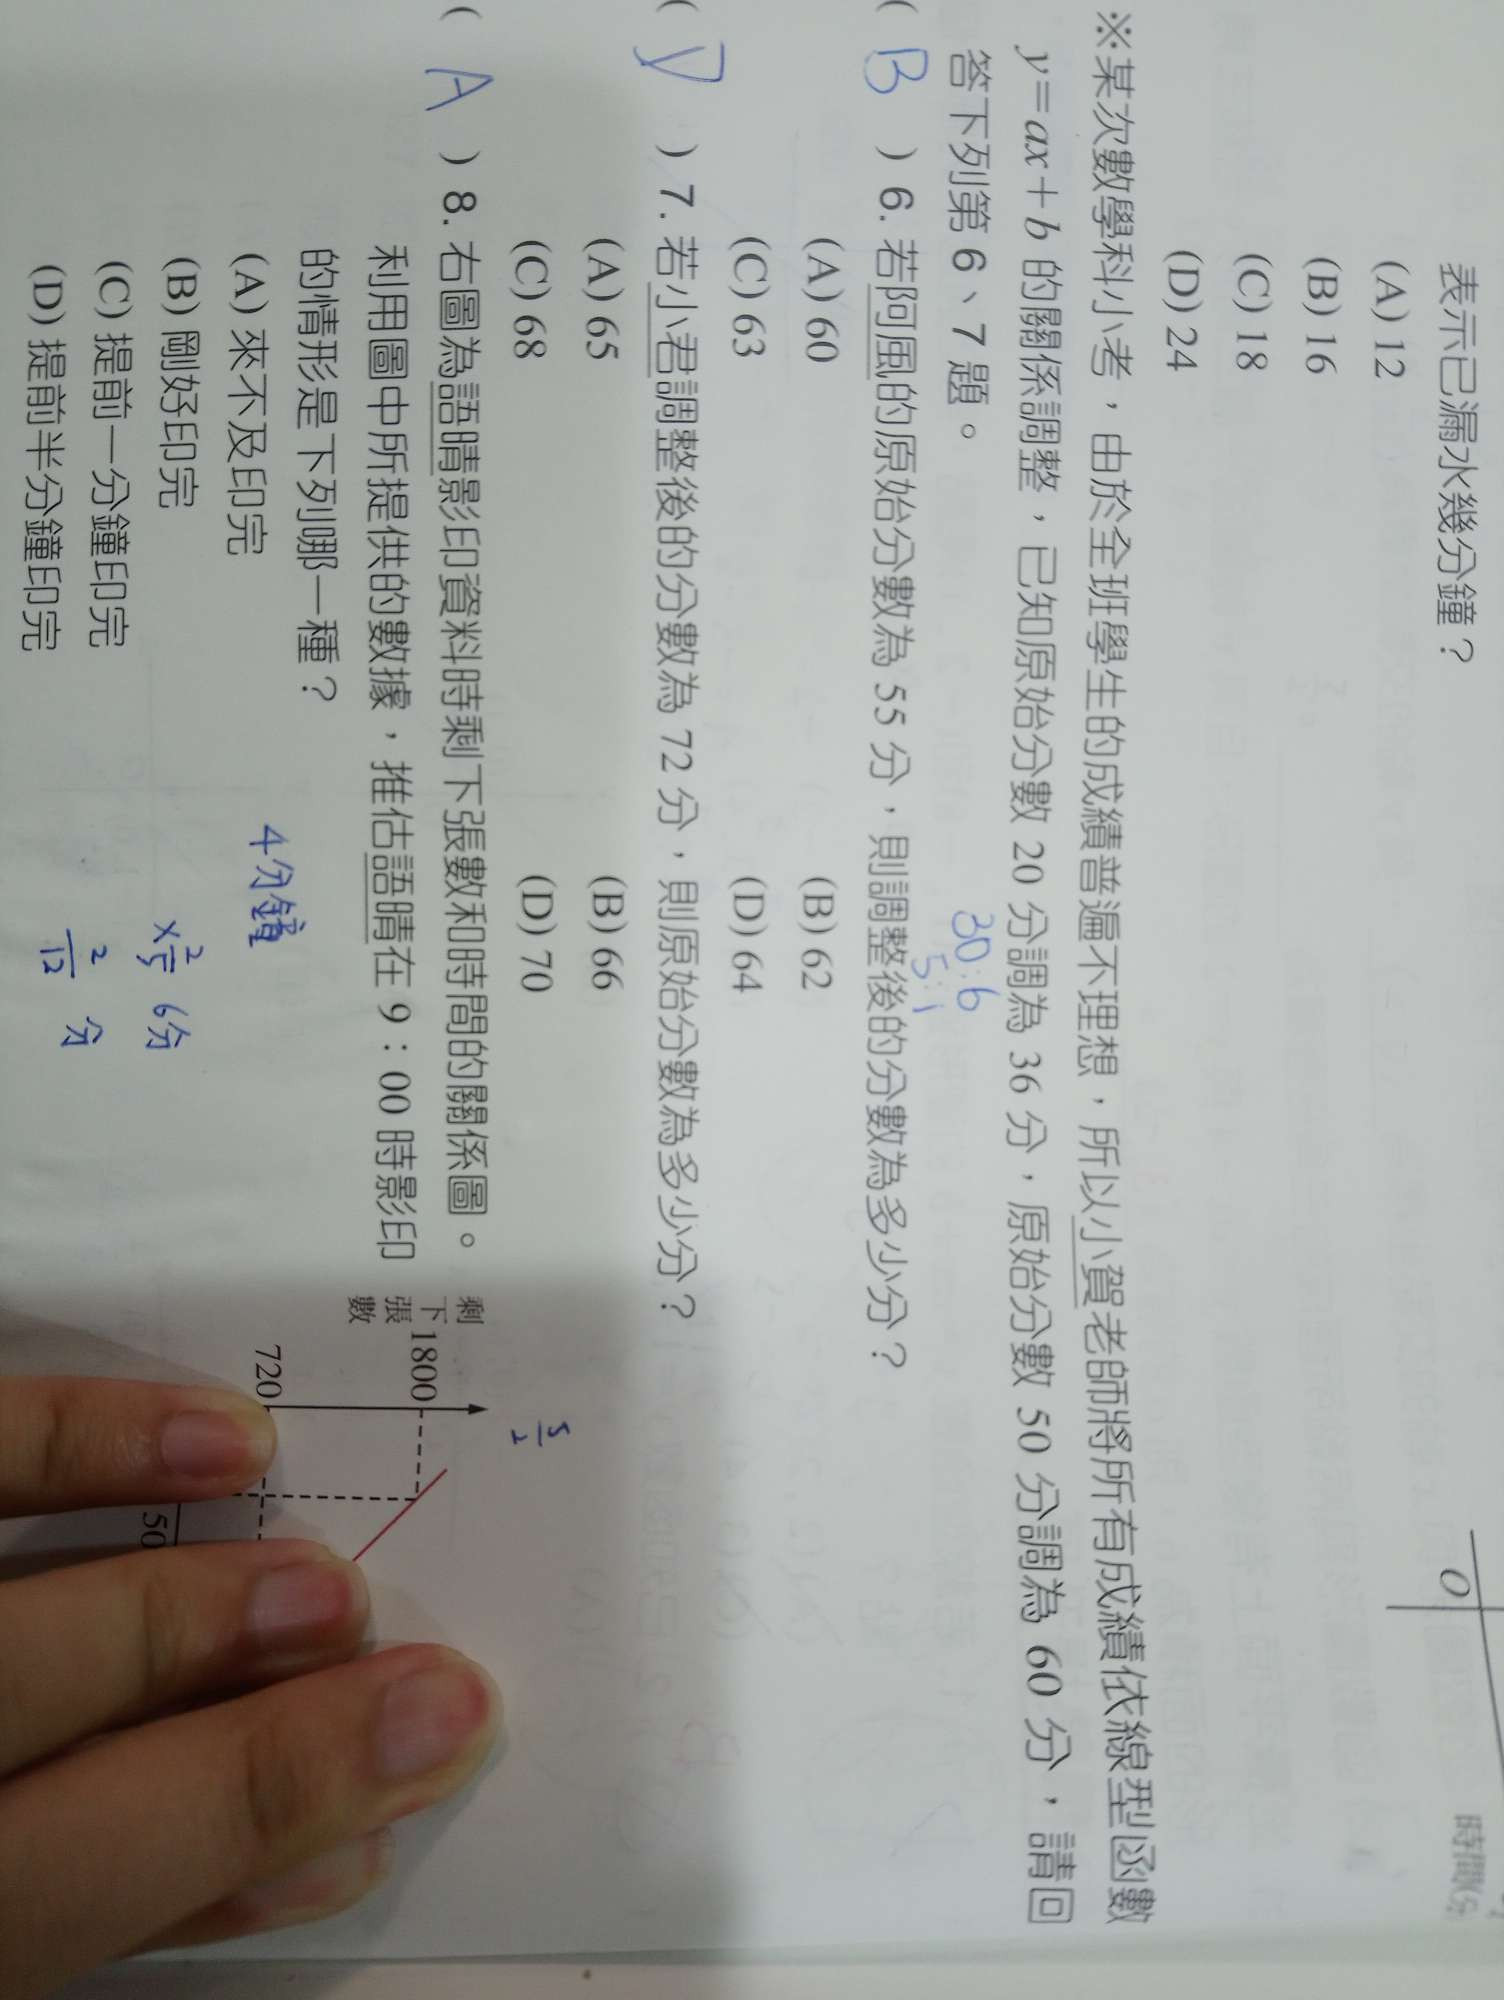 表示已漏水幾分鐘？
(A) 12
(B) 16
(C) 18
(D) 24
O
時間(分)
※某次數學科小考，由於全班學生的成績普遍不理想，所以小賀老師將所有成績依線型函數
y=ax+b 的關係調整，已知原始分數 20 分調為 36 分，原始分數 50 分調為 60 分，請回
答下列第 6、7 題。
30:6
5:1
( B ) 6. 若阿風的原始分數為 55 分，則調整後的分數為多少分？
(A) 60 (B) 62
(C) 63 (D) 64
( D ) 7. 若小君調整後的分數為 72 分，則原始分數為多少分？
(A) 65 (B) 66
(C) 68 (D) 70
( A ) 8. 右圖為語晴影印資料時剩下張數和時間的關係圖。
利用圖中所提供的數據，推估語晴在 9：00 時影印
的情形是下列哪一種？
(A) 來不及印完
(B) 剛好印完
(C) 提前一分鐘印完
(D) 提前半分鐘印完
4分鐘
×2/5 6分
2/12 分
5/2
剩下張數
1800
720
50